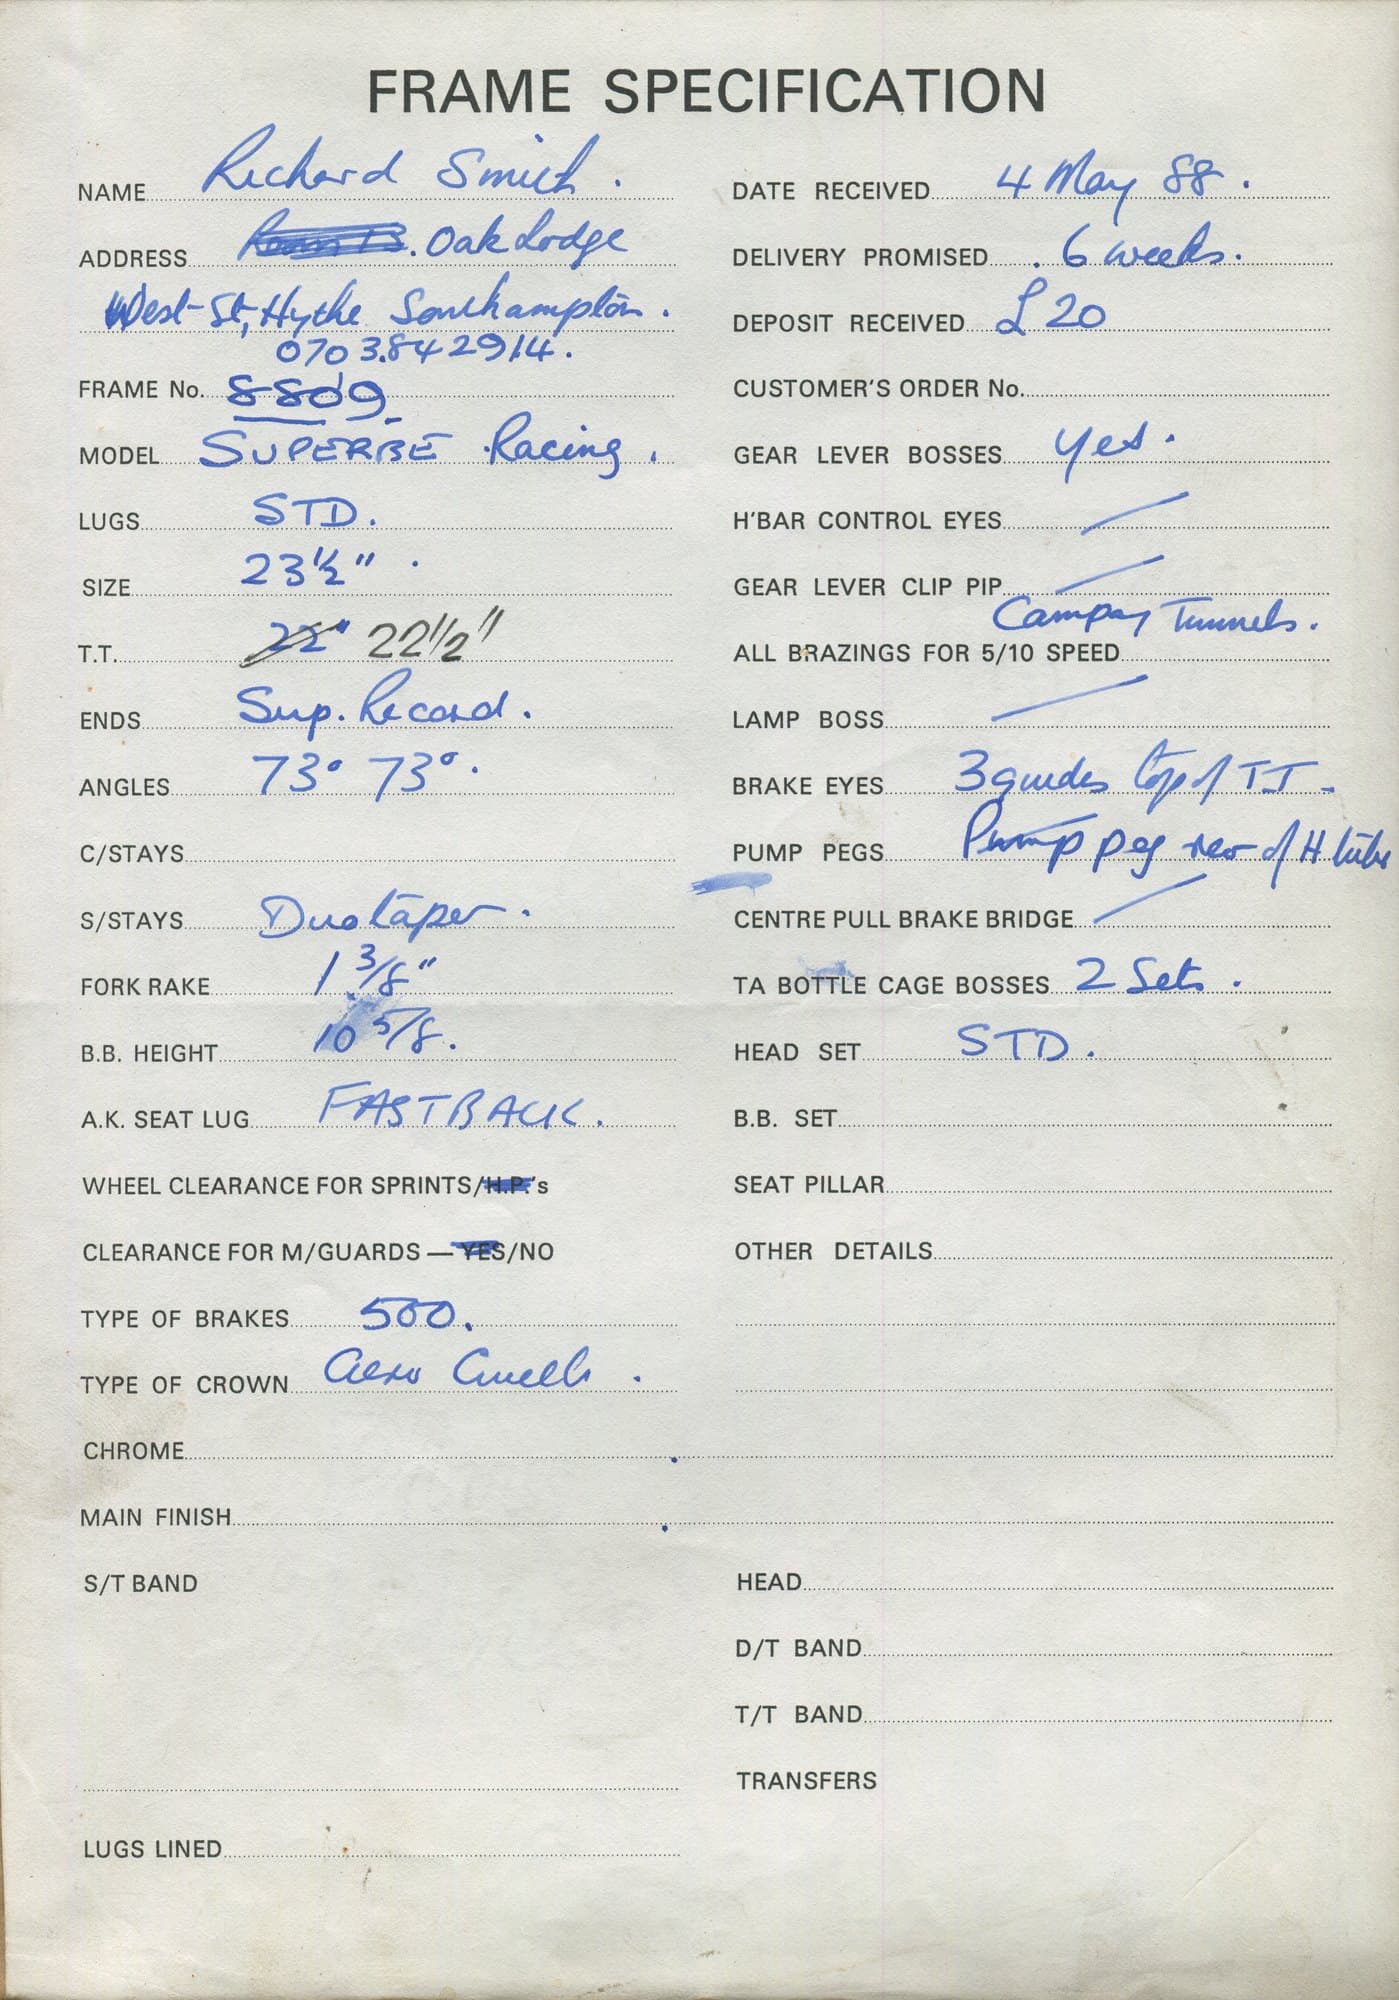 FRAME SPECIFICATION
NAME Richard Smith.
ADDRESS . Oak Lodge
West St, Hythe Southampton.
0703.842914.
FRAME No. 8809
MODEL SUPERBE Racing.
LUGS STD.
SIZE 23½".
T.T. 22" 22½"
ENDS Sup. Record.
ANGLES 73° 73°.
C/STAYS
S/STAYS Duotaper.
FORK RAKE 1 3/8"
B.B. HEIGHT 10 5/8.
A.K. SEAT LUG FASTBACK.
WHEEL CLEARANCE FOR SPRINTS/H.P.'s
CLEARANCE FOR M/GUARDS — YES/NO
TYPE OF BRAKES 500.
TYPE OF CROWN Aero Cinelli.
CHROME
MAIN FINISH
S/T BAND
LUGS LINED
DATE RECEIVED 4 May 88.
DELIVERY PROMISED . 6 weeks.
DEPOSIT RECEIVED £20
CUSTOMER'S ORDER No.
GEAR LEVER BOSSES Yes.
H'BAR CONTROL EYES
GEAR LEVER CLIP PIP
Campag Tunnels.
ALL BRAZINGS FOR 5/10 SPEED
LAMP BOSS
BRAKE EYES 3 guides top of T.T.
PUMP PEGS Pump peg rear of H tube
CENTRE PULL BRAKE BRIDGE
TA BOTTLE CAGE BOSSES 2 Sets.
HEAD SET STD.
B.B. SET
SEAT PILLAR
OTHER DETAILS
HEAD
D/T BAND
T/T BAND
TRANSFERS